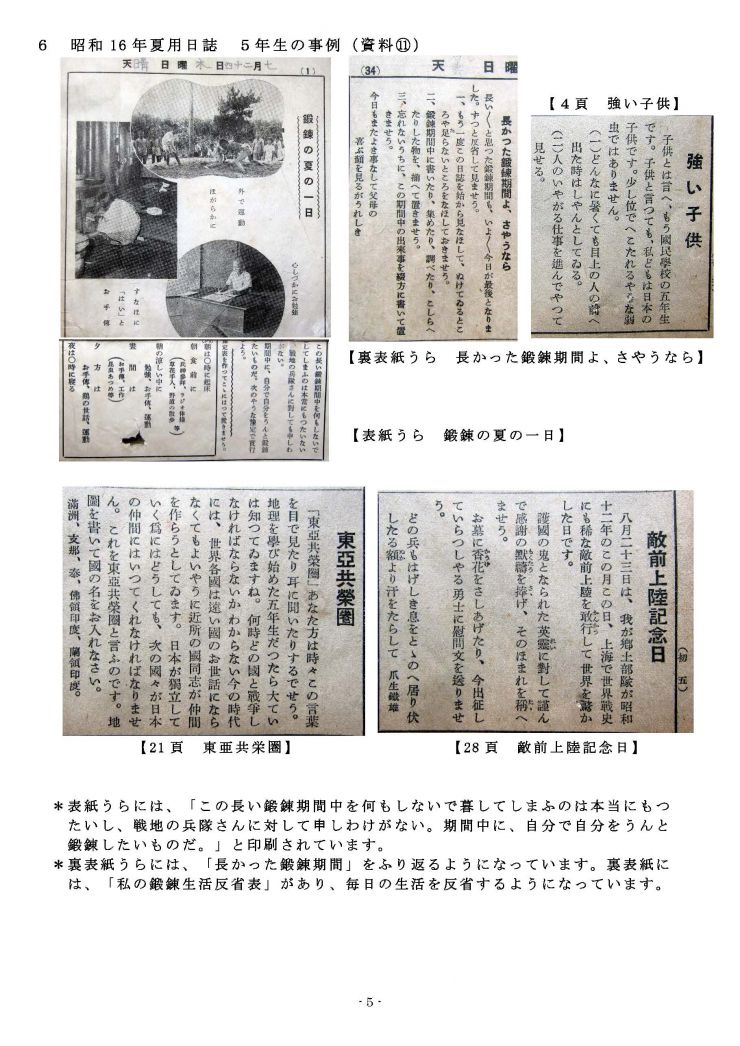 6 昭和16年夏用日誌 5年生の事例(資料⑪)
七月二十四日 木曜日 晴天
(1)
鍛錬の夏の一日
外で運動
ほがらかに
心しづかにお勉強
すなほに
「はい」と
お手傳
この長い鍛錬期間中を何もしないで
暮してしまふのは本當にもつたいない
し、戰地の兵隊さんに對しても申しわ
けがない。
期間中に、自分で自分をうんと鍛錬
したいものだ。次のやうな豫定で實行
しよう。
朝は〇時に起床
朝食前に
朝の涼しい中に
勉强、お手傳、運動
晝間は
お手傳、工作
夕方は
お手傳、鷄の世話、運動
夜は〇時に寢る
(34)
曜日 天
長かつた鍛錬期間よ、さやうなら
長い〱と思つた鍛錬期間も、いよ〱今日が最後となりま
した。ずつと反省して見ませう。
一、もう一度この日誌を始から見なほして、ぬけてゐるとこ
ろや足らないところをなほしておきませう。
二、鍛錬期間中に書いたり、集めたり、調べたり、こしらへ
たりした物を、揃へて置きませう。
三、忘れないうちに、この期間中の出來事を綴方に書いて置
きませう。
今日もまたよき事なして父母の
喜ぶ顏を見るがうれしき
【4頁 強い子供】
强い子供
子供とは言へ、もう國民學校の五年生
です。子供と言つても、私どもは日本の
子供です。少し位でへこたれるやうな弱
虫ではありません。
(一)どんなに暑くても目上の人の前へ
出た時はしやんとしてゐる。
(二)人のいやがる仕事を進んでやつて
見せる。
【裏表紙うら 長かった鍛錬期間よ、さやうなら】
【表紙うら 鍛錬の夏の一日】
東亞共榮圏
「東亞共榮圏」あなた方は時々この言葉
を目で見たり耳に聞いたりするでせう。
地理を學び始めた五年生だつたら大てい
は知つてゐますね。何時どの國と戰爭し
なければならないかわからない今の時代
には、世界各國は遠い國のお世話になら
なくてもよいやうに近所の國同志が仲間
を作らうとしてゐます。日本が獨立して
いく爲にはどうしても、次の國々が日本
の仲間にはいつてくれなければなりませ
ん。これを東亞共榮圏と言ふのです。地
圖を書いて國の名をお入れなさい。
滿洲、支那、泰、佛領印度、蘭領印度。
敵前上陸記念日
(初五)
八月二十三日は、我が鄕土部隊が昭和
十二年のこの月この日、上海で世界戰史
にも稀な敵前上陸を敢行して世界を驚か
した日です。
護國の鬼となられた英靈に對して謹ん
で感謝の默禱を捧げ、そのほまれを稱へ
ませう。
お墓に香花をさしあげたり、今出征し
ていらつしやる勇士に慰問文を送りませ
う。
どの兵もはげしき息をとゝのへ居り伏
したる額より汗をたらして 爪生鐵雄
【21頁 東亜共栄圏】
【28頁 敵前上陸記念日】
*表紙うらには、「この長い鍛錬期間中を何もしないで暮してしまふのは本当にもつ
たいし、戦地の兵隊さんに対して申しわけがない。期間中に、自分で自分をうんと
鍛錬したいものだ。」と印刷されています。
*裏表紙うらには、「長かった鍛錬期間」をふり返るようになっています。裏表紙に
は、「私の鍛錬生活反省表」があり、毎日の生活を反省するようになっています。
- 5 -